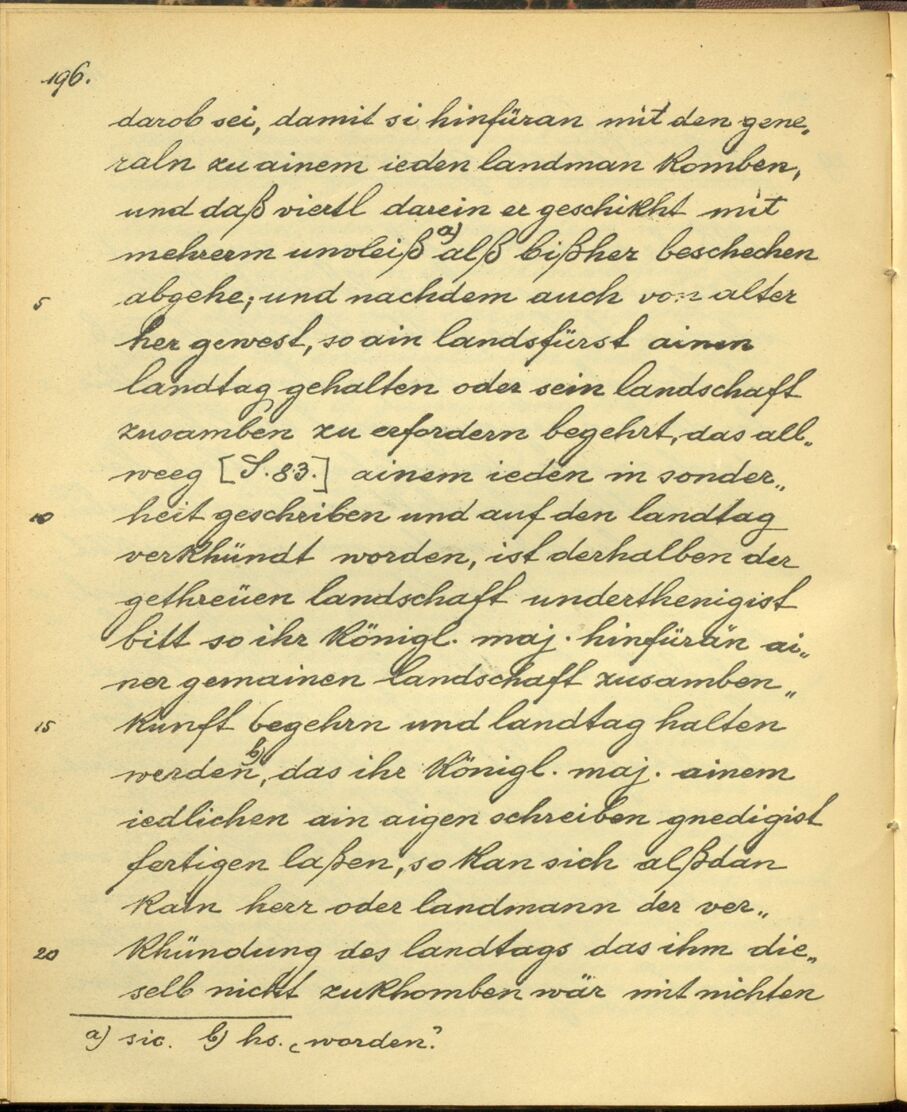 196.
darob sei, damit si hinfüran mit den gene„
raln zu ainem ieden landman komben,
und daß viertl darein er geschikht mit
mehrerm unvleiß a) alß bißher beschechen
5 abgehe; und nachdem auch von alter
her gewest, so ain landsfürst ainen
landtag gehalten oder sein landschaft
zusamben zu erfordern begehrt, das all„
weeg [S. 83.] ainem ieden in sonder„
10 heit geschriben und auf den landtag
verkhündt worden, ist derhalben der
gethreüen landschaft underthenigist
bitt so ihr königl. maj. hinfürän ai„
ner gemainen landschaft zusamben„
15 kunft begehrn und landtag halten
werden b), das ihr königl. maj. ainem
iedlichen ain aigen schreiben gnedigist
fertigen laßen, so kan sich alßdan
kain herr oder landmann der ver„
20 khündung des landtags das ihm die„
selb nicht zukhomben wär mit nichten
a) sic. b) hs. „worden."